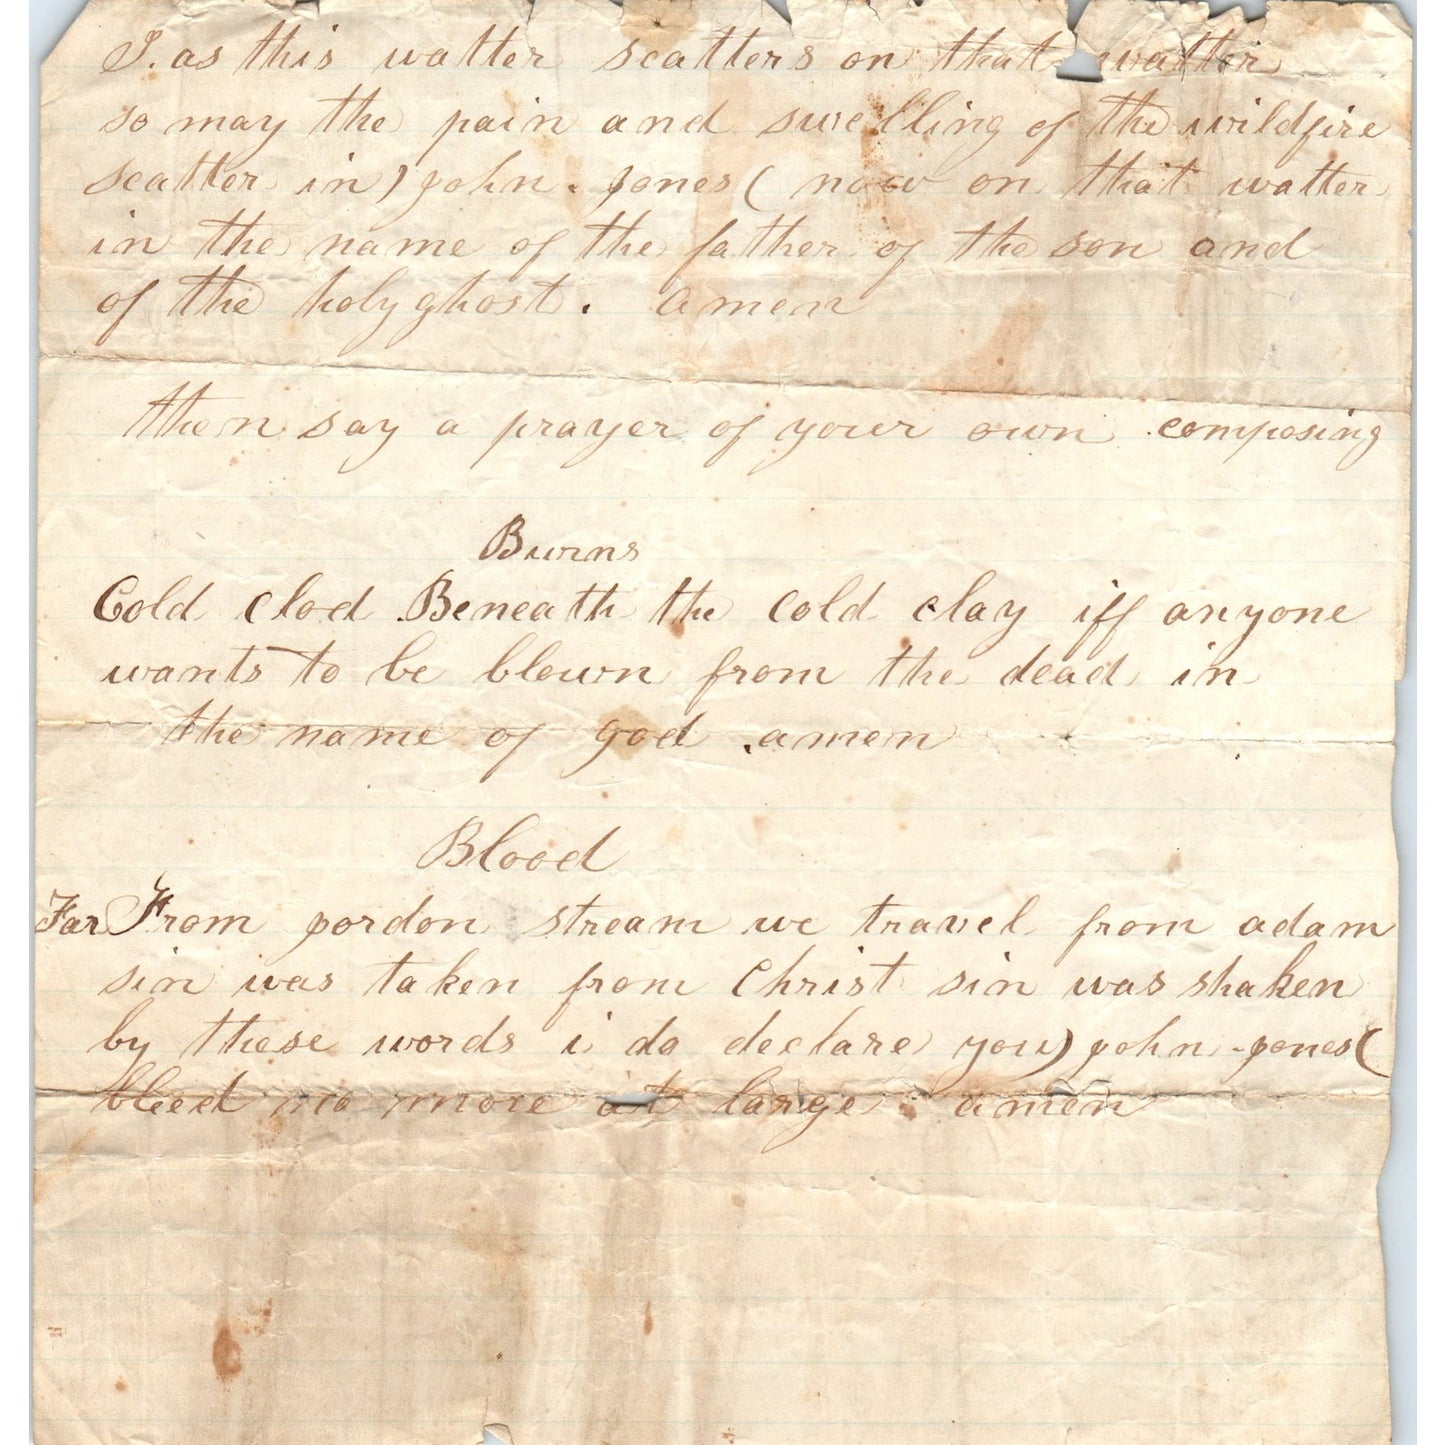 I. as this watter scatters on that watter
so may the pain and swelling of the wildfire
scatter in ) john . jones ( now on that watter
in the name of the father of the son and
of the holy ghost . amen
then say a prayer of your own composing
Burns
Cold clod Beneath the cold clay iff anyone
wants to be blown from the dead in
the name of god . amen
Blood
Far From jordon stream we travel from adam
sin was taken from Christ sin was shaken
by these words i do declare you ) john - jones (
bleed no more at large . amen